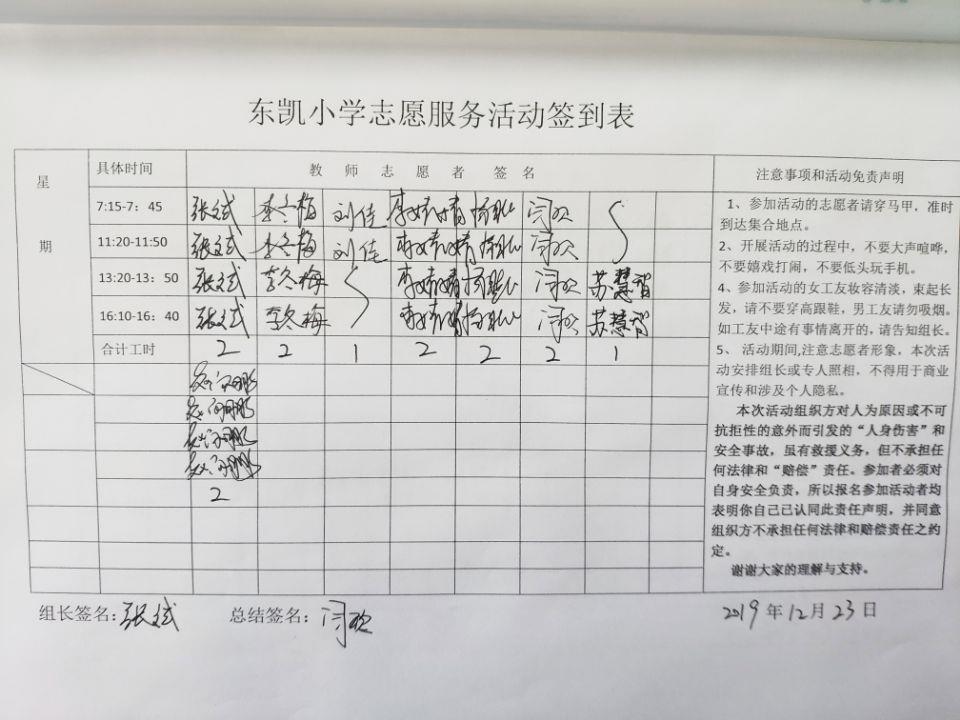 东凯小学志愿服务活动签到表
星期
具体时间 教师志愿者签名 注意事项和活动免责声明
7:15-7：45 张斌 李冬梅 刘佳 闫欢
11:20-11:50 张斌 李冬梅 刘佳 闫欢
13:20-13：50 张斌 李冬梅 闫欢 苏慧智
16:10-16：40 张斌 李冬梅 闫欢 苏慧智
合计工时 2 2 1 2 2 2 1
2
1、参加活动的志愿者请穿马甲，准时
到达集合地点。
2、开展活动的过程中，不要大声喧哗，
不要嬉戏打闹，不要低头玩手机。
4、参加活动的女工友妆容清淡，束起长
发，请不要穿高跟鞋，男工友请勿吸烟。
如工友中途有事情离开的，请告知组长。
5、活动期间,注意志愿者形象，本次活
动安排组长或专人照相，不得用于商业
宣传和涉及个人隐私。
本次活动组织方对人为原因或不可
抗拒性的意外而引发的“人身伤害”和
安全事故，虽有救援义务，但不承担任
何法律和“赔偿”责任。参加者必须对
自身安全负责，所以报名参加活动者均
表明你自己已认同此责任声明，并同意
组织方不承担任何法律和赔偿责任之约
定。
谢谢大家的理解与支持。
组长签名:张斌 总结签名：闫欢 2019年12月23日